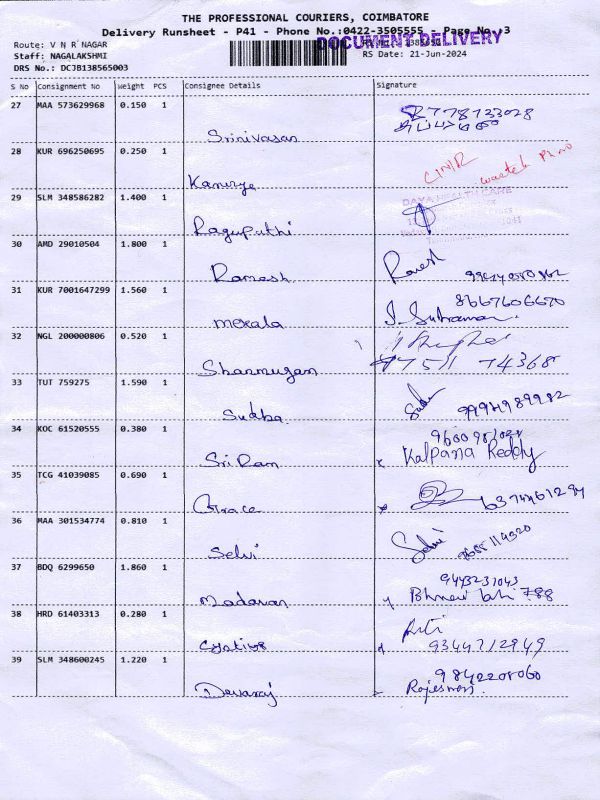 THE PROFESSIONAL COURIERS, COIMBATORE
Delivery Runsheet - P41 - Phone No.:0422-3505555 - Page No. 3
DOCUMENT DELIVERY
Route: V N R NAGAR
Staff: NAGALAKSHMI
RS Date: 21-Jun-2024
DRS No.: DCJB138565003
S No Consignment No Weight PCS Consignee Details Signature
27 MAA 573629968 0.150 1
Srinivasan
28 KUR 696250695 0.250 1
29 SLM 348586282 1.400 1
DAYA HEALTH CARE
Raguputhi
30 AMD 29010504 1.800 1
Ramesh Ramesh
31 KUR 7001647299 1.560 1 8667606670
mekala
32 NGL 200000806 0.520 1
Shanmugan 97511 74368
33 TUT 759275 1.590 1
Sudha 9994989982
34 KOC 61520555 0.380 1
Sri Ram Kalpana Reddy
35 TCG 41039085 0.690 1
Grace
36 MAA 301534774 0.810 1
Selvi Selvi
37 BDQ 6299650 1.860 1 9443231043
Madavan
38 HRD 61403313 0.280 1
9344712949
39 SLM 348600245 1.220 1 9842208060
Devaraj Rajeswari